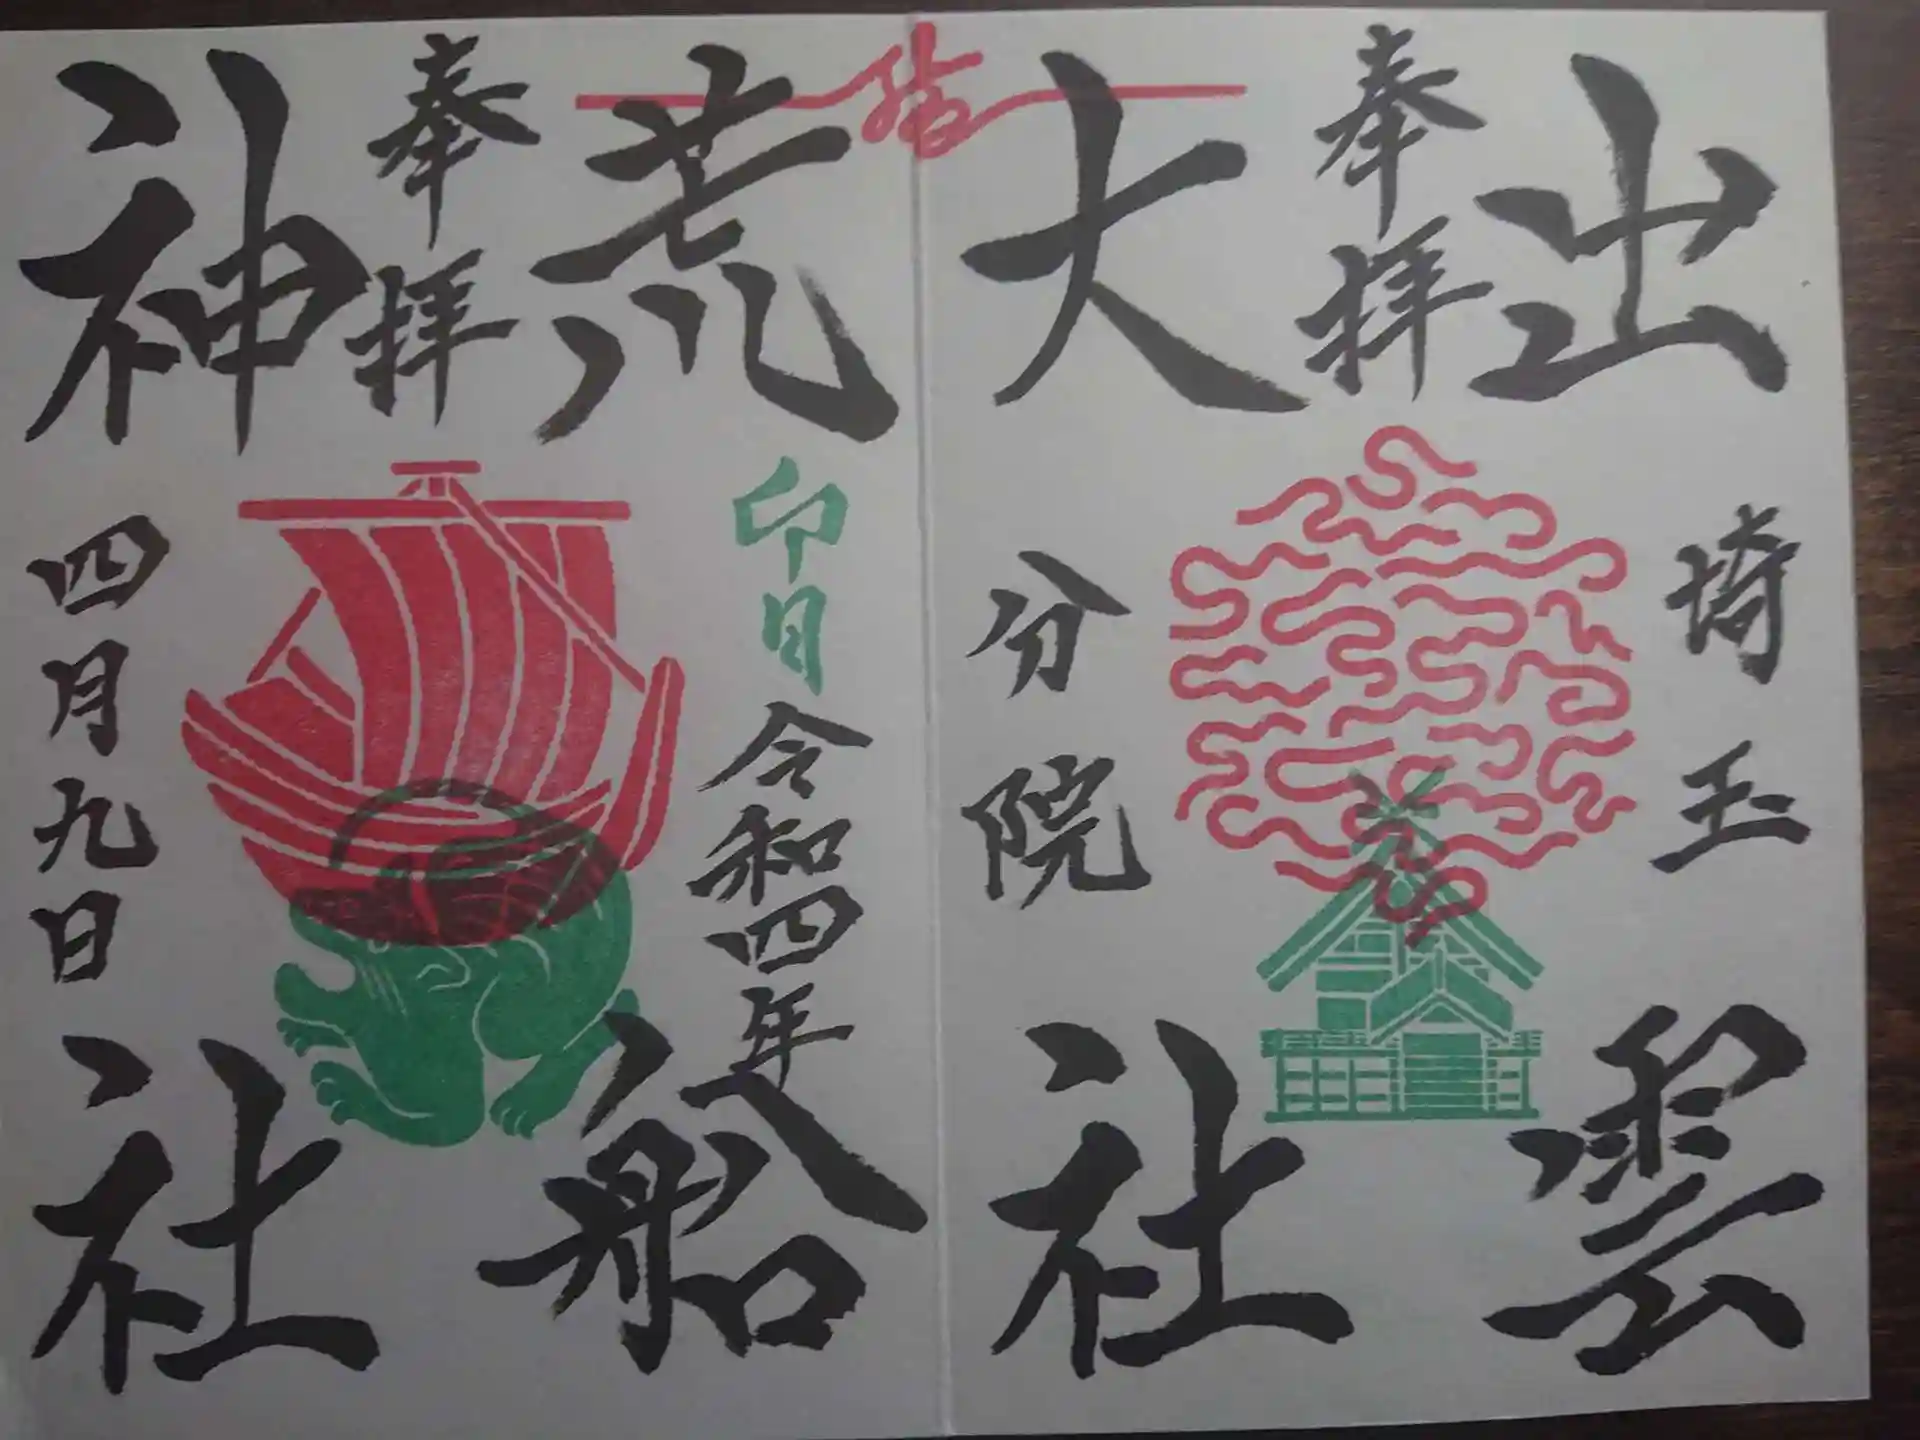 結
出雲
奉拝
大社
埼玉
分院
荒船
奉拝
神社
卯日
令和四年
四月九日